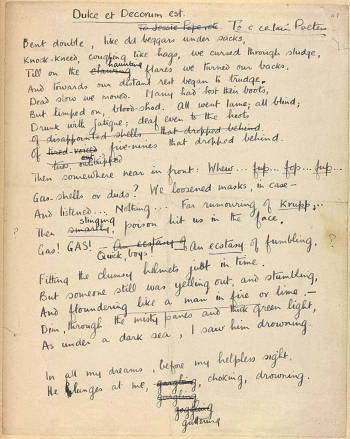 Dulce et Decorum est.
To Jessie Pope etc To a certain Poetess.
Bent double, like old beggars under sacks,
Knock-kneed, coughing like hags, we cursed through sludge,
haunting
Till on the clawing flares we turned our backs,
And towards our distant rest began to trudge.
Dead slow we moved. Many had lost their boots,
But limped on, blood-shod. All went lame; all blind;
Drunk with fatigue; deaf even to the hoots
Of disappointed shells that dropped behind.
Of tired-voiced five-nines that dropped behind.
outstripped
Then somewhere near in front: Whew... fup... fop... fup...
Gas-shells or duds? We loosened masks, in case—
And listened... Nothing... Far rumouring of Krupp...
stinging
Then smartly, poison hit us in the face.
Gas! GAS! — An ecstasy
Quick, boys! An ecstasy of fumbling.
Fitting the clumsy helmets just in time.
But someone still was yelling out, and stumbling,
And floundering like a man in fire or lime.—
Dim, through the misty panes and thick green light,
As under a dark sea, I saw him drowning.
In all my dreams, before my helpless sight,
He plunges at me, gargling, choking, drowning.
gurgling
goggling
guttering